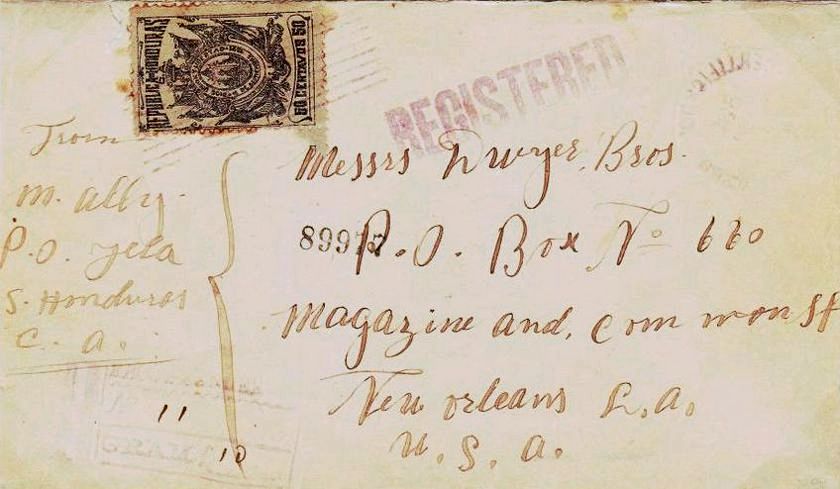 REPUBLICA DE HONDURAS
50 CENTAVOS 50
REGISTERED
From
M. Alby.
P.O. Yela
S. Honduras
C. A.
Messrs Dwyer, Bros.
89975
P. O. Box No 660
Magazine and, Common St
New orleans L.a.
U. S. A.
11
10